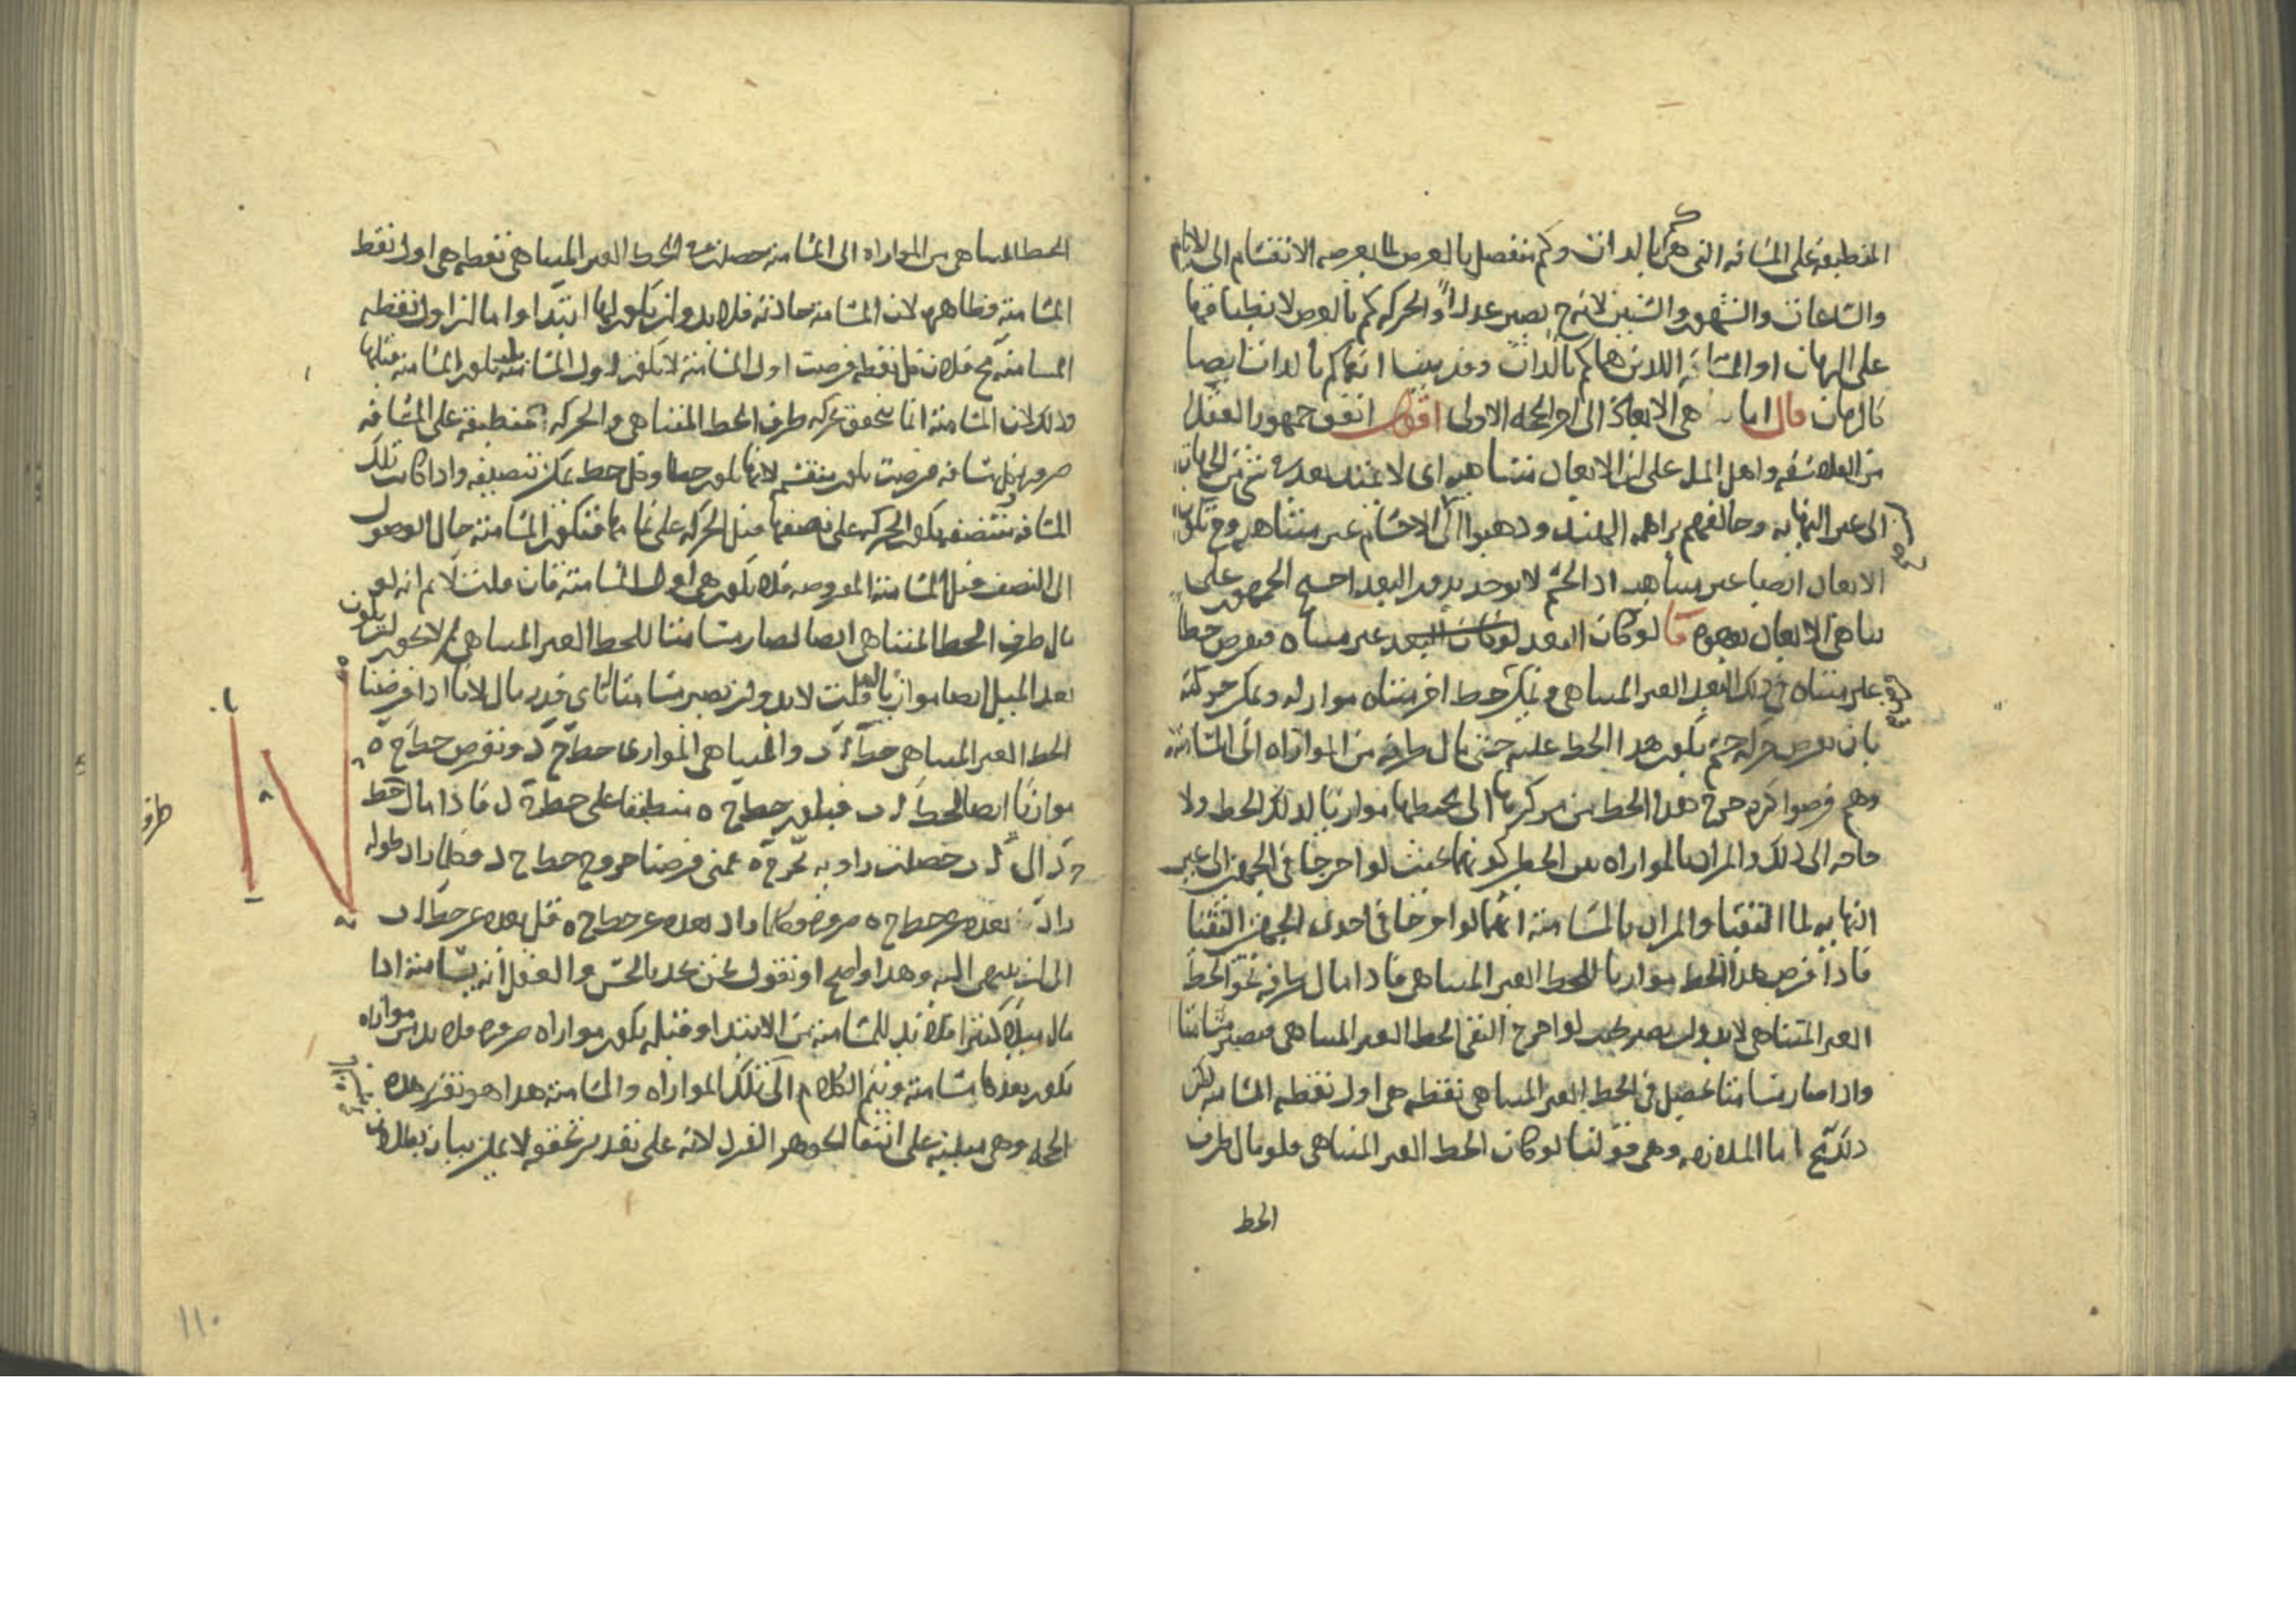 المنطبقة على المسافة التي هي كم بالذات وكم منفصل بالعرض لما يعرضه الانقسام الى الايام
والساعات والشهور والسنين لانه ح يصير عددا والحركة كم بالعرض لانطباقها
على الزمان او المسافة اللذين هما كم بالذات وقد بينا انهما كم بالذات ايضا
كالزمان قال اما تناهي الابعاد الى اخر الجملة الاولى اقول اتفق جمهور العقلا
من الفلاسفة واهل الملل على ان الابعاد متناهية اى لا يمتد بعد في شي من الجهات
الى غير النهاية وخالفهم براهمة الهند وذهبوا الى ان الاجسام غير متناهية وح تكون
الابعاد ايضا غير متناهية اذ الجسم لا يوجد بدون البعد احتج الجمهور على
تناهي الابعاد بوجوه ا لو كان البعد لو كان البعد غير متناه فنفرض خطا
غير متناه في ذلك البعد الغير المتناهي ويمكن خط اخر متناه مواز له ويمكن حركته
بان نفرض حركة جسم يكون هذا الخط عليه حتى مال طرفه من الموازاة الى المسامتة
وهم فرضوا كرة خرج هذا الخط من مركزها الى محيطها موازيا لذلك الخط ولا
حاجة الى ذلك والمراد بالموازاة بين الخطين كونهما بحيث لو اخرجا في الجهتين الى غير
النهاية لما التقيا والمراد بالمسامتة انهما لو اخرجا في احدى الجهتين التقيا
فاذا فرض هذا الخط موازيا للخط الغير المتناهي فاذا مال طرفه نحو الخط
الغير المتناهي لا بد وان يصير بحيث لو اخرج التقى الخط الغير المتناهي فيصير مسامتا
واذا صار مسامتا تحصل في الخط الغير المتناهي نقطة هي اول نقطة المسامتة لكن
ذلك مح اما الملازمة وهي قولنا لو كان الخط الغير المتناهي فلو مال طرف
الخط
الخط المتناهي من الموازاة الى المسامتة حصلت في الخط الغير المتناهي نقطة هي اول نقط
المسامتة فظاهرة لان المسامتة حادثة فلا بد وان يكون لها ابتدا واما ان اول نقطة
المسامتة مح فلان كل نقطة فرضت اول المسامتة لا تكون اول المسامتة بل تكون المسامتة قبلها
وذلك لان المسامتة انما تتحقق بحركة طرف الخط المتناهي والحركة منطبقة على المسافة
ضرورة وكل مسافة فرضت تكون منقسمة لانها تكون خطا وكل خط يمكن تنصيفه واذا كانت تلك
المسافة تتنصف يكون الحركة على نصفها قبل الحركة على تمامها فتكون المسامتة حال الوصول
الى النصف قبل المسامتة المفروضة فلا تكون هي اول المسامتة فان قلت لا نم انه لو
مال طرف الخط المتناهي ايضا لصار مسامتا للخط الغير المتناهي لم لا يجوز ان يكون
بعد الميل ايضا موازيا له قلت لا بد وان يصير مسامتا باى قدر مال لانا اذا فرضنا
الخط الغير المتناهي خط ا ب والمتناهي الموازي خط ج د ونفرض خط ج ه
موازيا ايضا لخط ا ب فيكون خط ج ه منطبقا على خط ج د فاذا مال خط
ج د الى ا ب حصلت زاوية د ج ه فمتى فرضنا خروج خط ج د فكلما زاد طوله
زاد بعده عن خط ج ه ضرورة وكلما زاد بعده عن خط ج ه قل بعده عن خط ا ب
الى ان ينتهي اليه وهذا واضح او نقول نحن نجد بالحس والعقل انه يسامته اذا
مال ميلا كثيرا فلا بد للمسامتة من الابتدا وقبله يكون موازاة ضرورة فلا بد من موازاة
تكون بعدها مسامتة ويتم الكلام الى تلك الموازاة والمسامتة هذا هو تقرير هذه
الحجة وهي مبنية على انتفا الجوهر الفرد لانه على تقدير تحققه لا يمكن بيان بطلان
ا
ب
ج
د
ه
طرف
١١٠